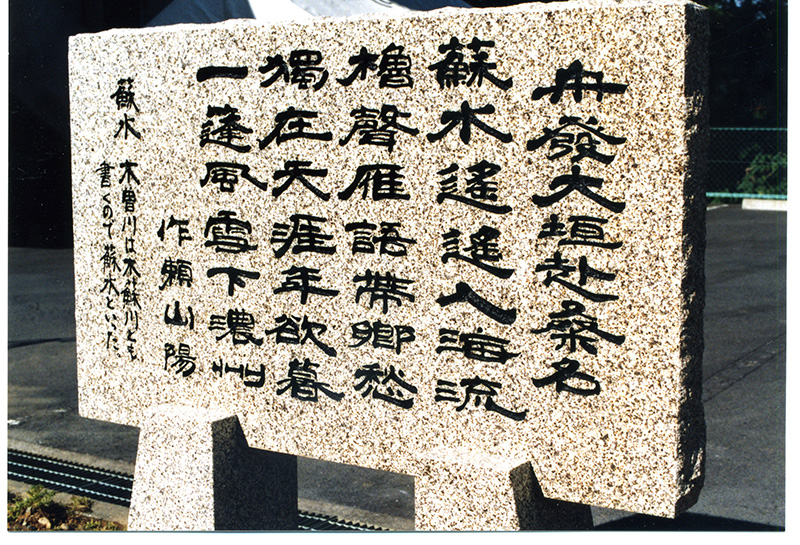 舟發大垣赴桑名
蘇水遙遙入海流
櫓聲雁語帶鄉愁
獨在天涯年欲暮
一篷風雪下濃州
作頼山陽
蘇水 木曽川は木蘇川とも
書くので蘇水といった。